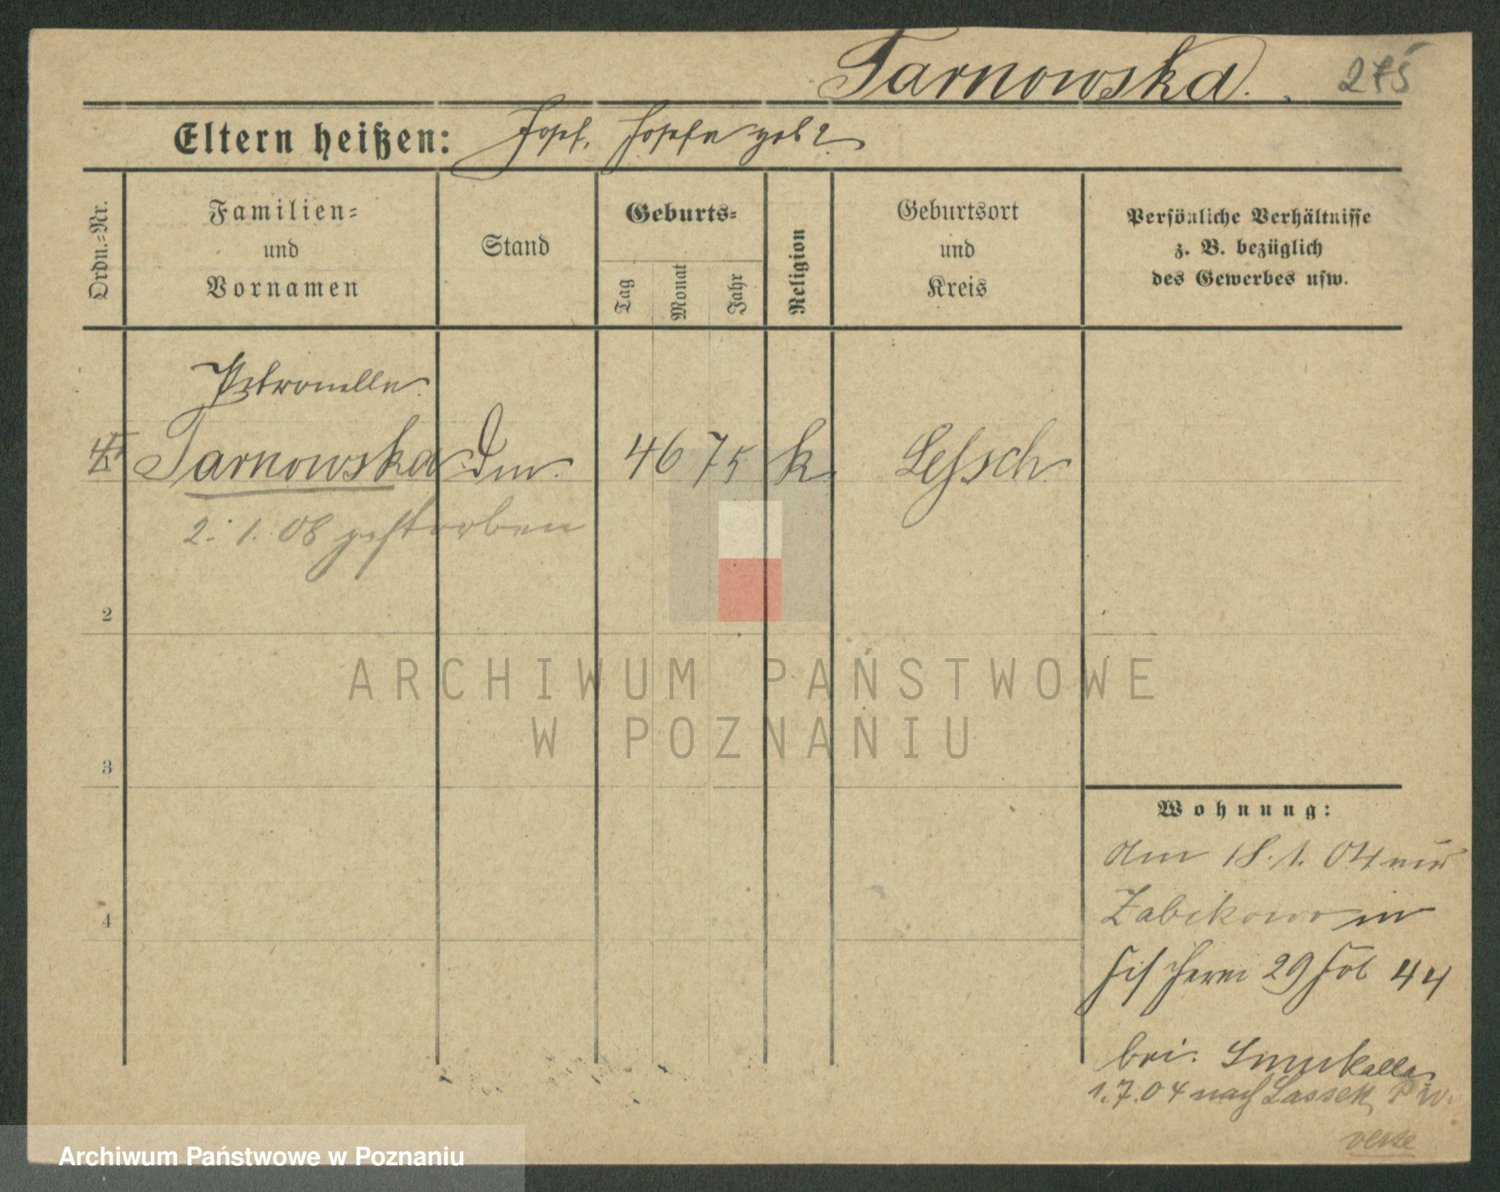 Tarnowska. 275
Eltern heißen: Josef, Josefa geb ?
Ordn.=Nr.
Familien=
und
Vornamen
Stand
Geburts=
Tag
Monat
Jahr
Religion
Geburtsort
und
Kreis
Persönliche Verhältnisse
z. B. bezüglich
des Gewerbes usw.
Petronella
Tarnowska 4 6 75 k
2. 1. 08 gestorben
2
3
4
Wohnung:
am 18. 1. 04 aus
Zabikowo in
Fischerei 29 44
bei
1.7.04 nach Lassek, P W.
ARCHIWUM PAŃSTWOWE
W POZNANIU
Archiwum Państwowe w Poznaniu